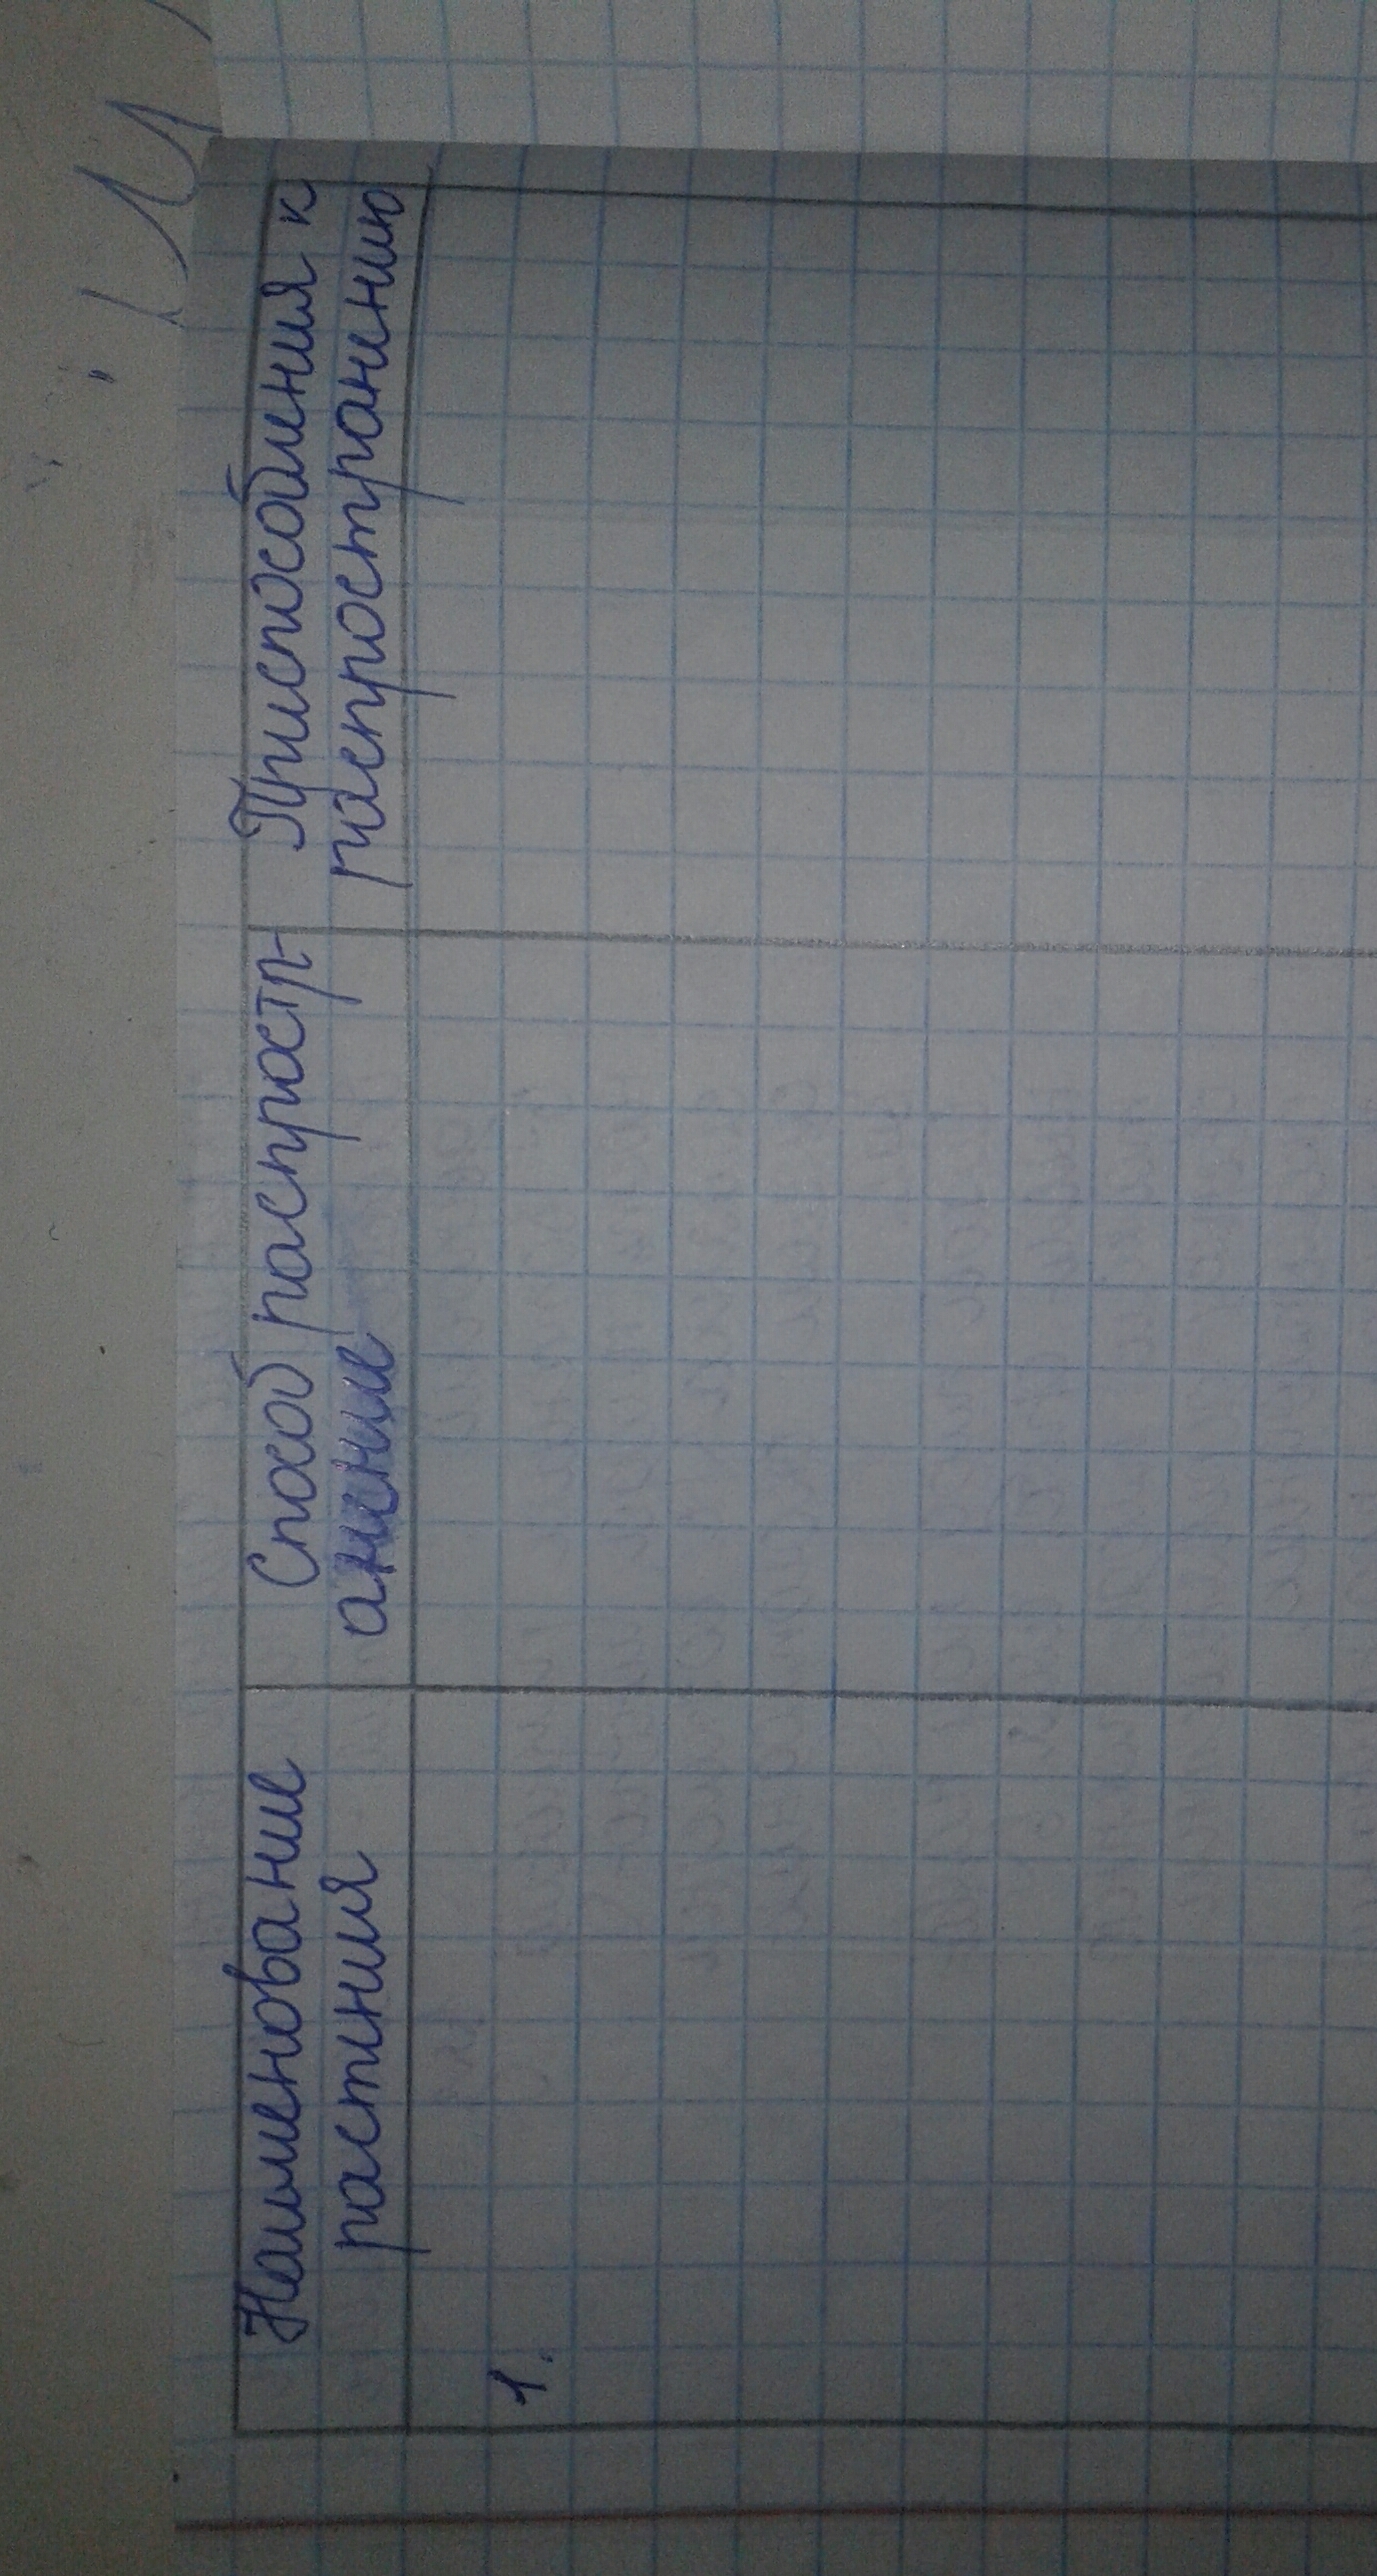 Наименование
растения
Способ распростр-
анение
Приспособления к
распространению
1.